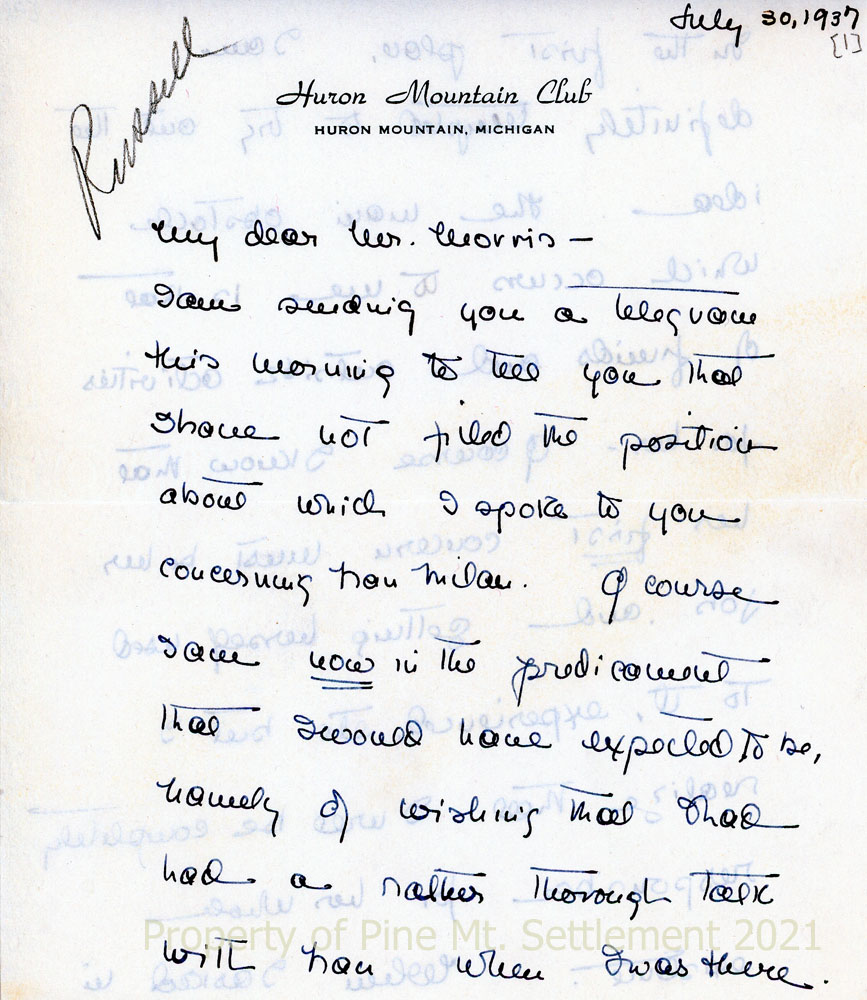 July 30, 1937
[1]
Russell
Huron Mountain Club
HURON MOUNTAIN, MICHIGAN
My dear Mr. Morris —
I am sending you a telegram
this morning to tell you that
I have not filled the position
about which I spoke to you
concerning Fran Milan. Of course
I am now in the predicament
that I would have expected to be,
namely of wishing that I had
had a rather thorough talk
with Fran when I was there.
Property of Pine Mt. Settlement 2021